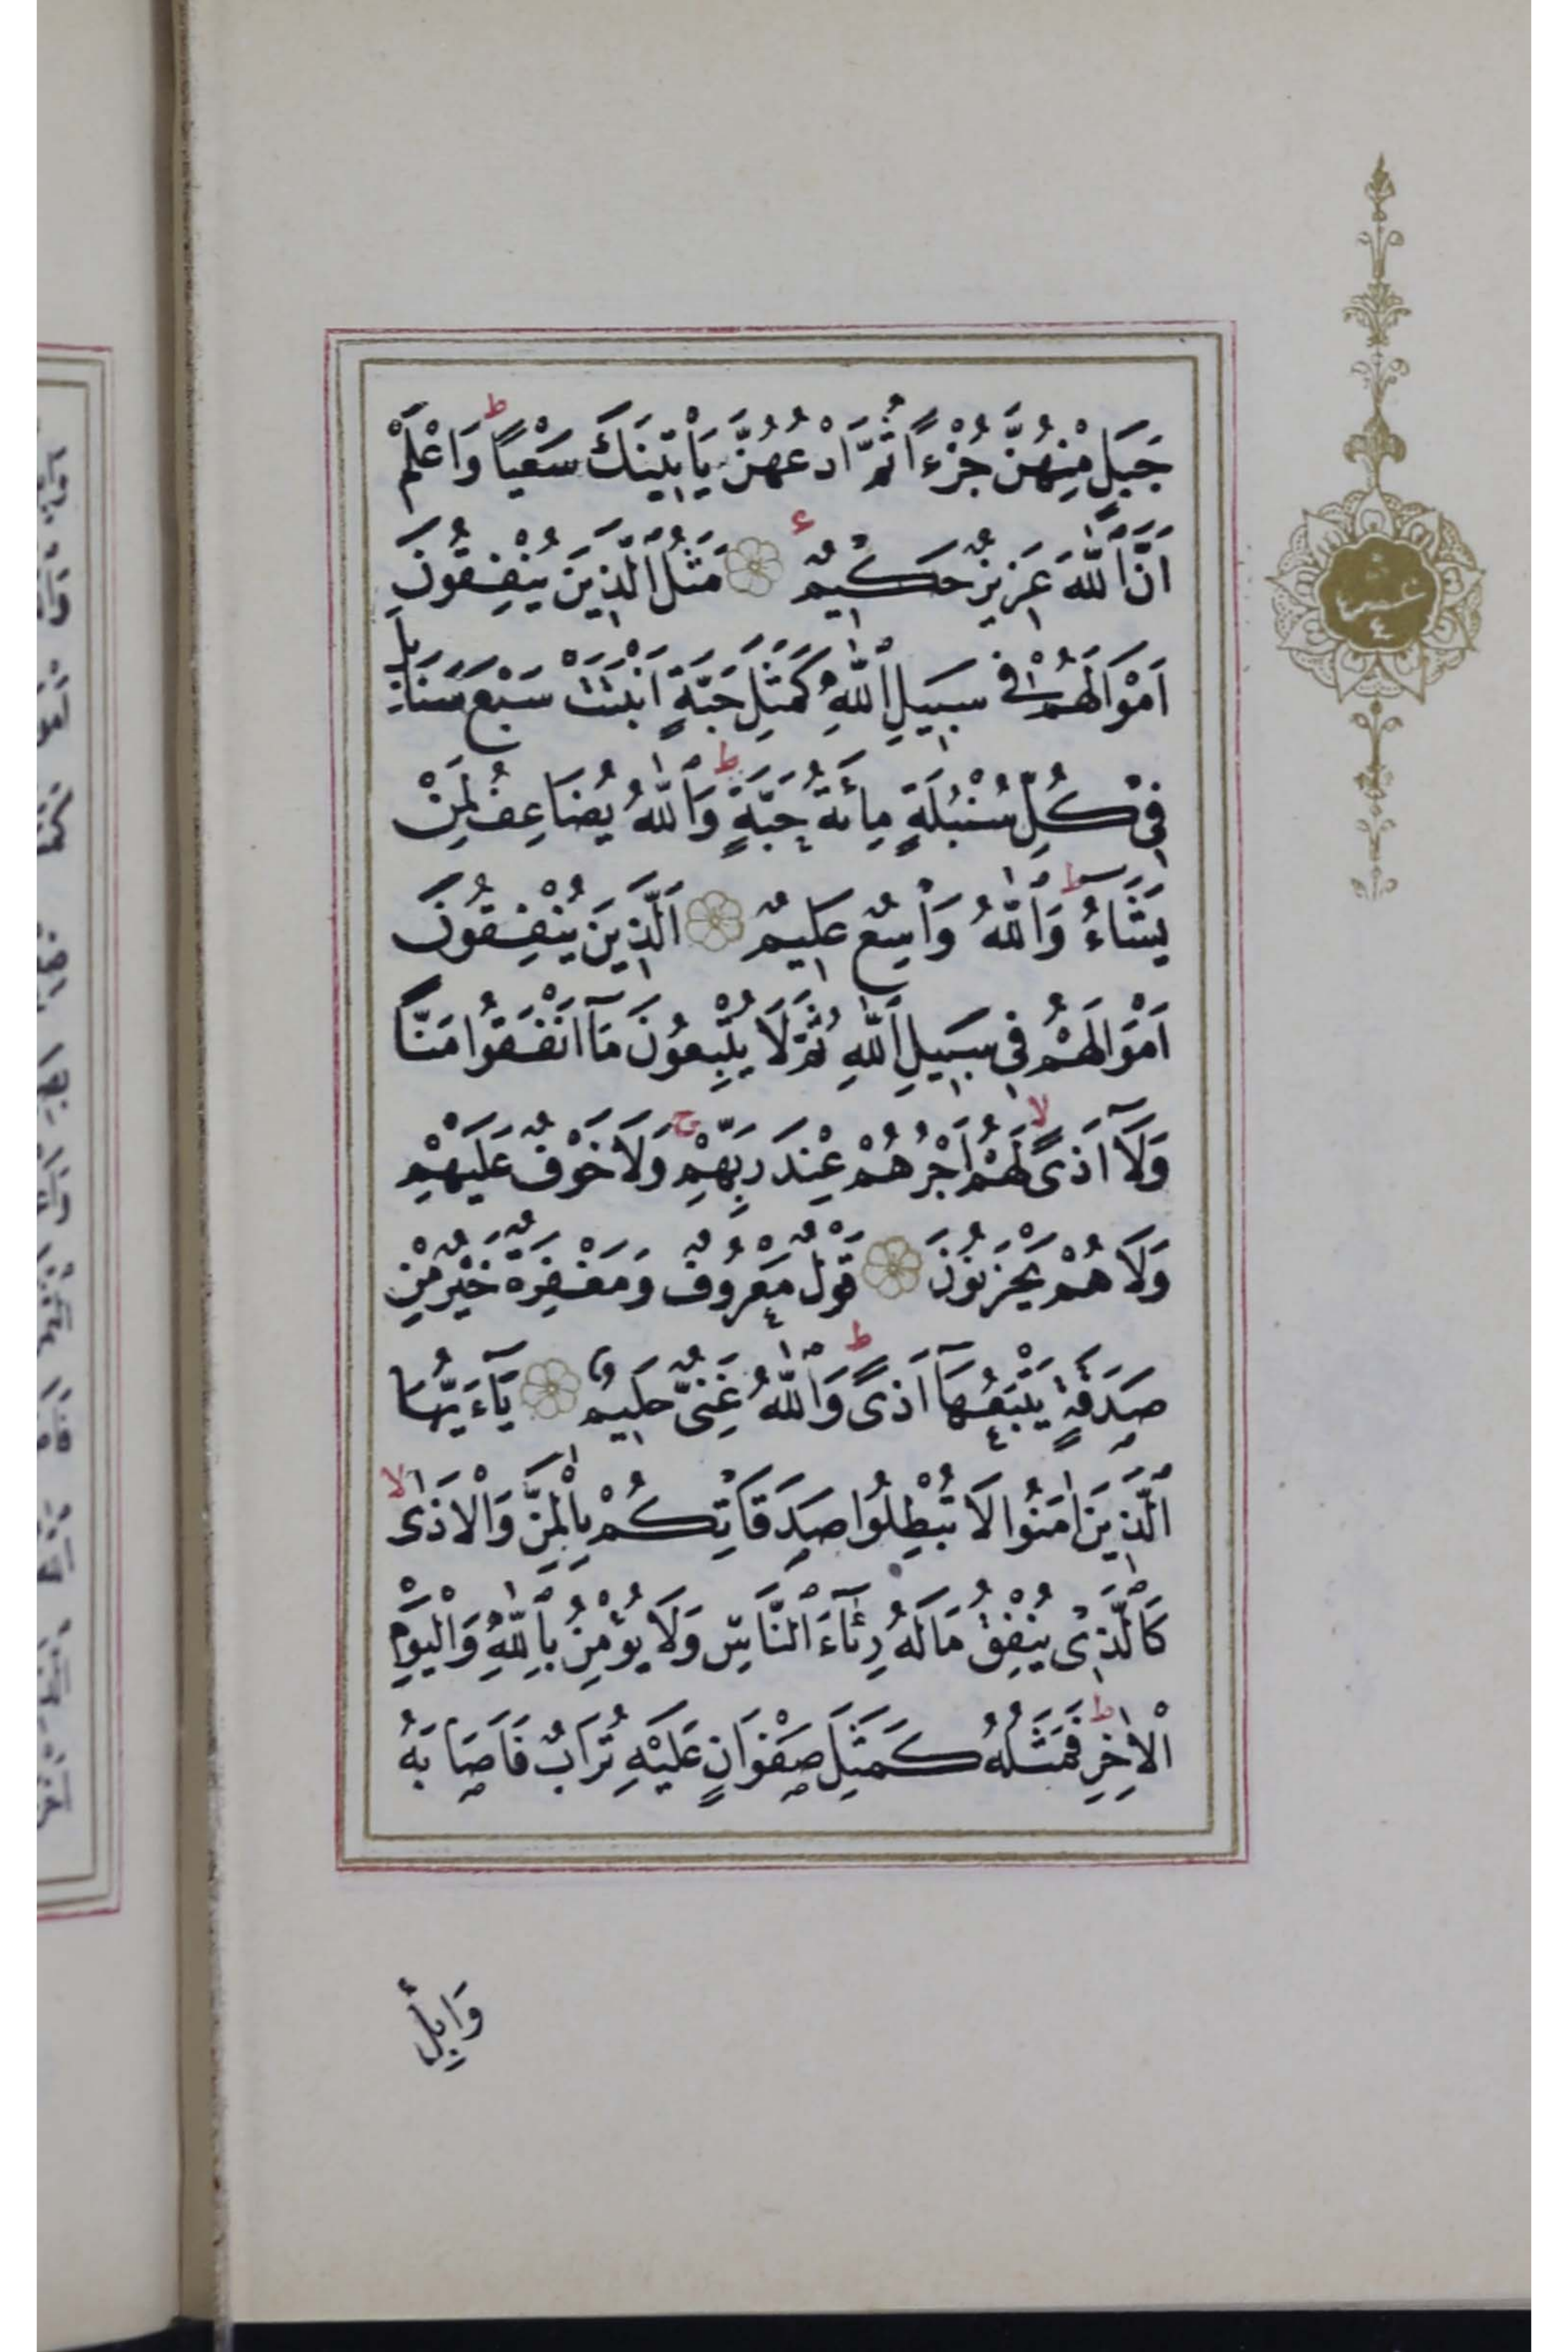 جَبَلٍ مِنْهُنَّ جُزْءًا ثُمَّ ادْعُهُنَّ يَأْتِينَكَ سَعْيًا ط وَاعْلَمْ
اَنَّ ٱللّٰهَ عَزِيزٌ حَكِيمٌ ء مَثَلُ ٱلَّذِينَ يُنْفِقُونَ
اَمْوَالَهُمْ فِي سَبِيلِ ٱللّٰهِ كَمَثَلِ حَبَّةٍ اَنْبَتَتْ سَبْعَ سَنَابِلَ
فِي كُلِّ سُنْبُلَةٍ مِائَةُ حَبَّةٍ ط وَٱللّٰهُ يُضَاعِفُ لِمَنْ
يَشَآءُ ط وَٱللّٰهُ وَاسِعٌ عَلِيمٌ اَلَّذِينَ يُنْفِقُونَ
اَمْوَالَهُمْ فِي سَبِيلِ ٱللّٰهِ ثُمَّ لَا يُتْبِعُونَ مَآ اَنْفَقُوا مَنًّا
وَلَآ اَذًى لا لَهُمْ اَجْرُهُمْ عِنْدَ رَبِّهِمْ ج وَلَا خَوْفٌ عَلَيْهِمْ
وَلَا هُمْ يَحْزَنُونَ قَوْلٌ مَعْرُوفٌ وَمَغْفِرَةٌ خَيْرٌ مِنْ
صَدَقَةٍ يَتْبَعُهَآ اَذًى ط وَٱللّٰهُ غَنِيٌّ حَلِيمٌ يَآءَيُّهَا
ٱلَّذِينَ اٰمَنُوا لَا تُبْطِلُوا صَدَقَاتِكُمْ بِالْمَنِّ وَالْاَذٰى لا
كَٱلَّذِي يُنْفِقُ مَالَهُ رِئَآءَ ٱلنَّاسِ وَلَا يُؤْمِنُ بِٱللّٰهِ وَالْيَوْمِ
الْاٰخِرِ ط فَمَثَلُهُ كَمَثَلِ صَفْوَانٍ عَلَيْهِ تُرَابٌ فَاَصَابَهُ
وَابِلٌ
عشر